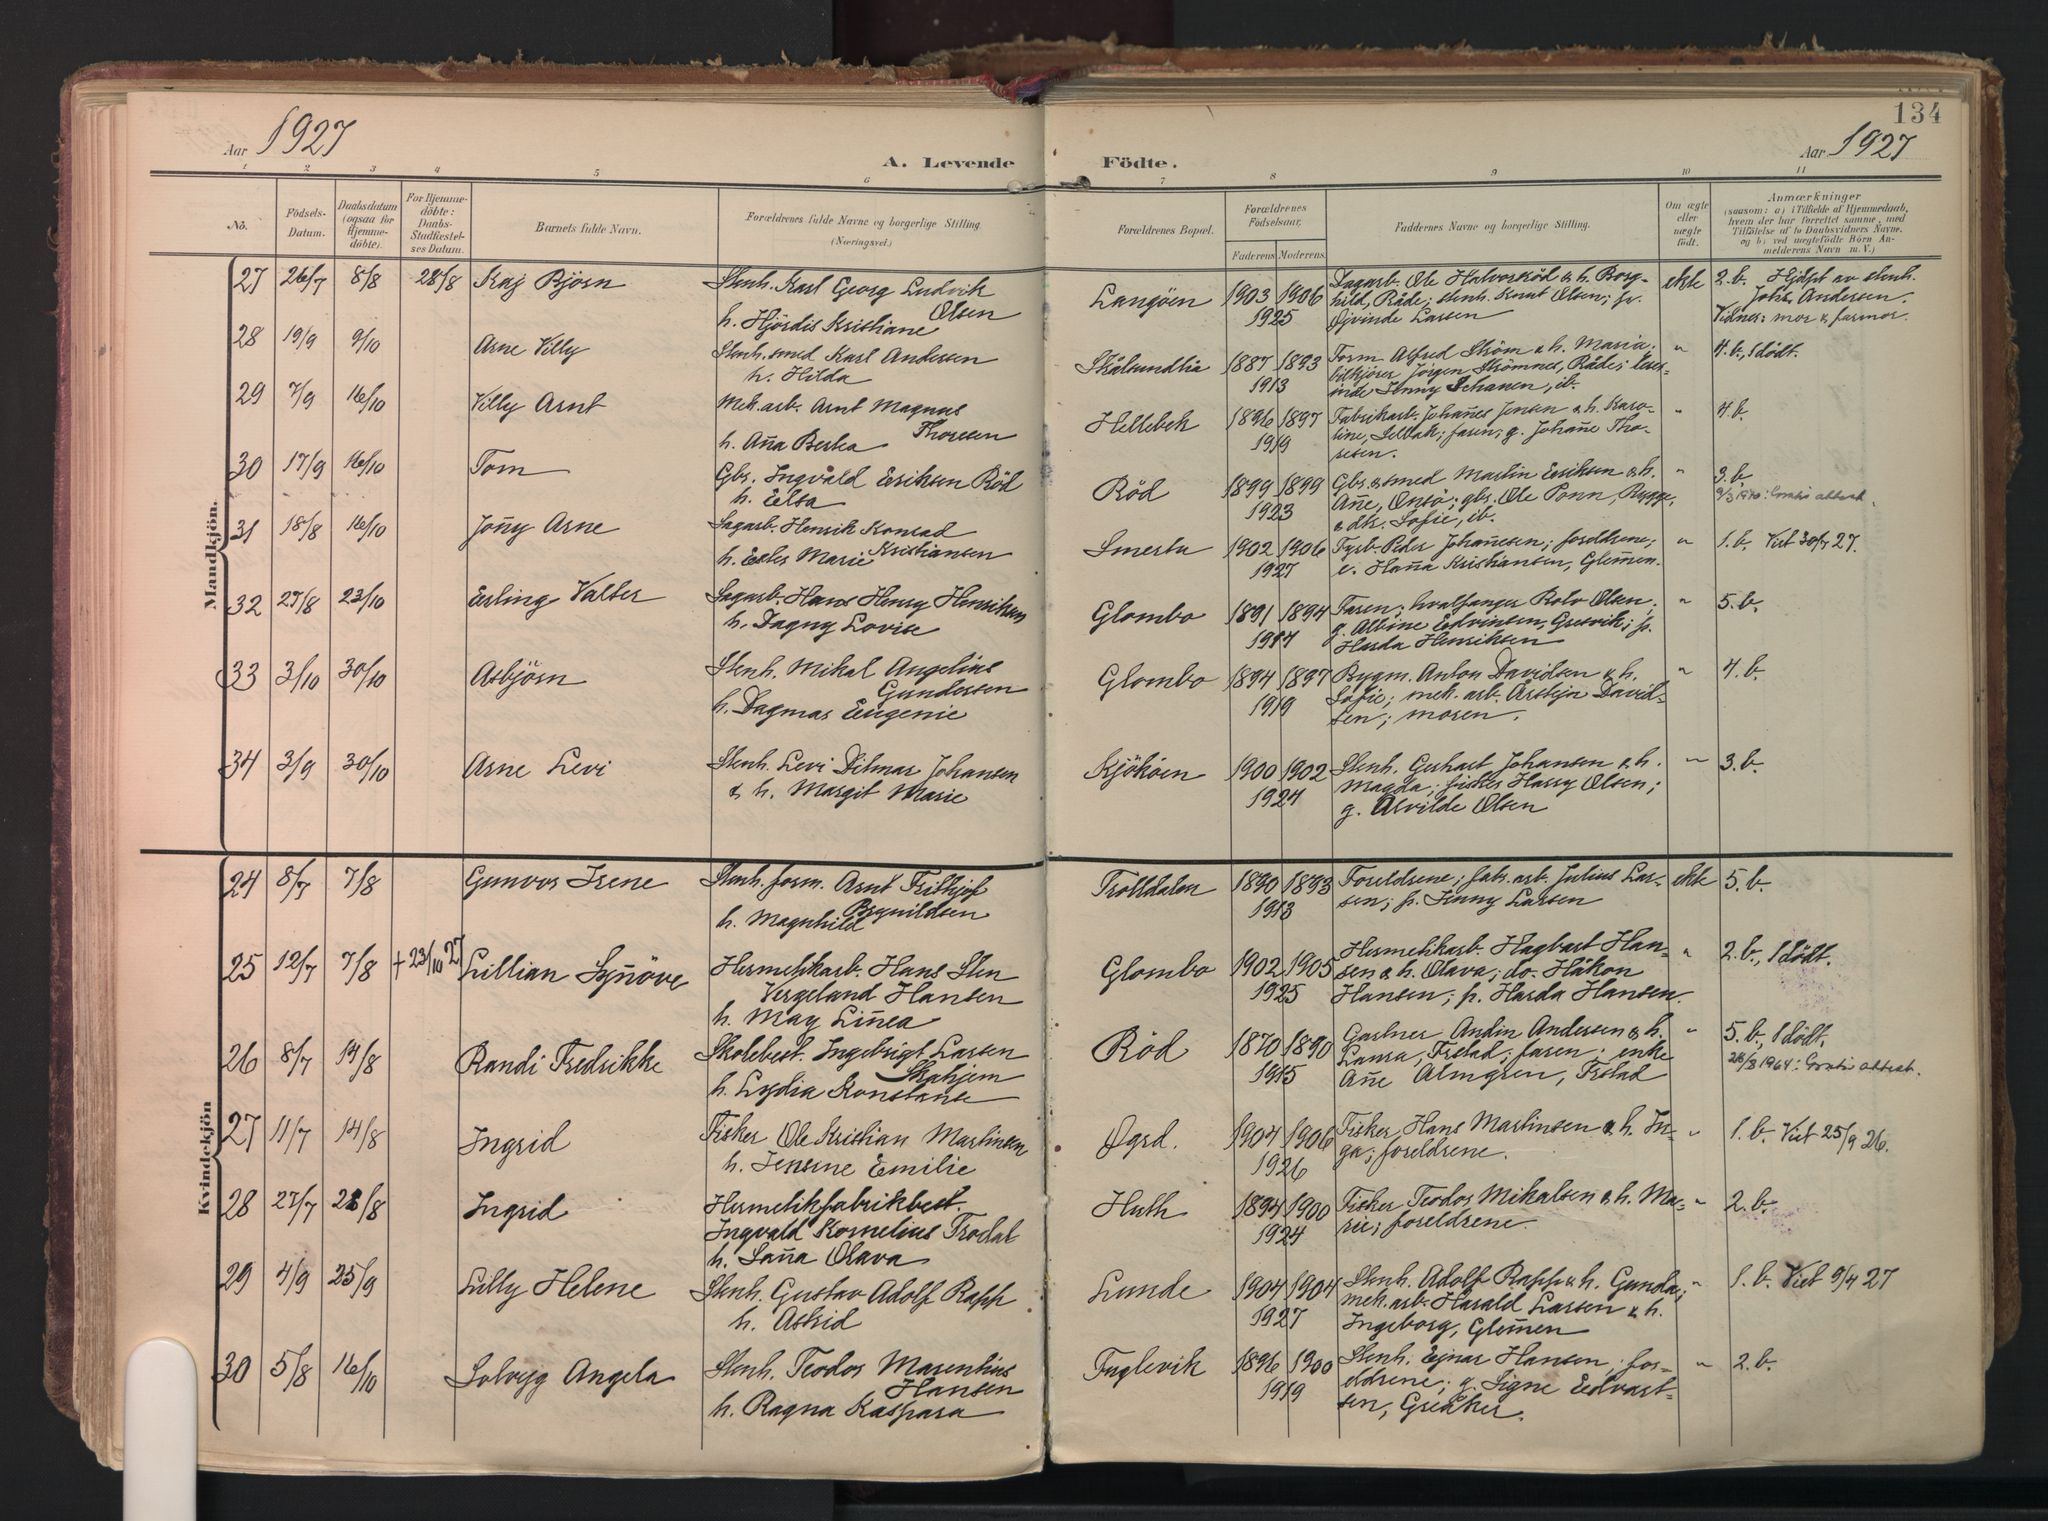 134
Aar 1927
A. Levende Födte.
Aar 1927
1 2 3 4 5 6 7 8 9 10 11
No.
Födsels-Datum.
Daabsdatum (ogsaa for Hjemmedöbte).
For Hjemmedöbte: Daabs-Stadfæstelses Datum.
Barnets fulde Navn.
Forældrenes fulde Navne og borgerlige Stilling (Næringsvei.)
Forældrenes Bopæl.
Forældrenes Födselsaar.
Faderens. Moderens.
Faddernes Navne og borgerlige Stilling.
Om ægte eller uægte født.
Anmærkninger (saasom: a) i Tilfælde af Hjemmedaab, hvem der har forrettet samme, med Tilföielse af to Daabsvidners Navne, og b) ved uægtefödte Börn Anmelderens Navn m. V.)
Mandkjön.
27 26/7 8/8 28/8 Kaj Björn
Stenh. Karl Georg Ludvik Olsen
h. Hjördis Kristiane
Langöen 1903 1906 1925
Dagarb. Ole Halvorsröd & h. Borg-
hild, Råde; stenh. Knut Olsen; p.
Øjvinde Larsen
ekte 2. b. Hjdpt av stenh.
Johs. Andersen.
Vidner: mor & farmor.
28 19/9 9/10 Arne Villy
Stenh. smed Karl Andersen
h. Hilda
1887 1893 1913
Form. Alfred Ström & h. Maria;
bilkjörer Jörgen Strömnes, Råde;
Jenny Johansen, ib.
" 4. b., 1 dödt.
29 7/9 16/10 Villy Arnt
Mek. arb. Arnt Magnus Thoresen
h. Aña Bertea
Hellebek 1896 1897 1919
Fabrikarb. Johañes Jensen & h. Karo-
line, Selbak; faren; g. Johañe Tho-
resen.
" 4. b.
30 17/9 16/10 Tom
Gbr. Ingvald Eriksen Röd
h. Elsa
Röd 1899 1899 1923
Gbr. & smed Martin Eriksen & h.
Añe, Onsö; gbr. Ole Ponn, Rygge,
& dtr. Sofie, ib.
" 3. b.
9/3 1970: Gratis attest.
31 18/8 16/10 Joñy Arne
Sagarb. Henrik Konrad Kristiansen
h. Ester Marie
Smertu 1902 1906 1927
Fyrb. Peder Johañesen; foreldrene;
e. Haña Kristiansen, Glem̃en.
" 1. b. Viet 30/7 27.
32 27/8 23/10 Erling Valter
Sagarb. Hans Henry Henriksen
h. Dagny Lovise
Glombo 1891 1894 1917
Faren; hvalfanger Rolv Olsen;
g. Albine Edvinsen, Gresvik; p.
Harda Henriksen
" 5. b.
33 3/10 30/10 Asbjörn
Stenh. Mikal Angelius Gundersen
h. Dagmar Eugenie
Glombo 1894 1897 1919
Bygm. Anton Davidsen & h.
Sofie; mek. arb. Åsbjörn David-
sen; moren.
" 4. b.
34 3/9 30/10 Arne Levi
Stenh. Levi Ditmar Johansen
& h. Margit Marie
Kjököen 1900 1902 1924
Stenh. Gerhart Johansen & h.
Magda; fisker Harry Olsen;
g. Alvilde Olsen
" 3. b.
Kvindekjön
24 8/7 7/8 Gunvor Irene
Stenh. form. Arnt Frithjof Brynildsen
h. Magnhild
Trolldalen 1890 1893 1913
Foreldrene; fabr. arb. Julius Lar-
sen; p. Jenny Larsen
ekte 5. b.
25 12/7 7/8 + 23/10 27 Lillian Syñöve
Hermetikkarb. Hans Sten
Vergeland Hansen
h. May Liñea
Glombo 1902 1905 1925
Hermetikkarb. Hagbart Han-
sen & h. Olava; do. Håkon
Hansen; p. Harda Hansen.
" 2. b., 1 dödt.
26 8/7 14/8 Randi Fredrikke
Skolebest. Ingebrigt Larsen Skahjem
h. Lydia Konstanse
Röd 1870 1890 1915
Gartner Andin Andersen & h.
Laura, Fr.stad; faren; enke
Añe Almgren, Fr.stad
" 5. b., 1 dödt.
26/3 1964: Gratis attest.
27 11/7 14/8 Ingrid
Fisker Ole Kristian Martinsen
h. Jensine Emilie
Øgrd. 1904 1906 1926
Fisker Hans Martinsen & h. In-
ga; foreldrene.
" 1. b. Viet 25/9 26.
28 27/7 28/8 Ingrid
Hermetikfabrikbest.
Ingvald Kornelius Frodal
h. Saña Olava
Huth 1894 1900 1924
Fisker Teodor Mikalsen & h. Ma-
rie; foreldrene
" 2. b.
29 4/9 25/9 Lilly Helene
Stenh. Gustav Adolf Rapp
h. Astrid
Lunde 1904 1904 1927
Stenh. Adolf Rapp & h. Gunda;
mek. arb. Harald Larsen & h.
Ingeborg, Glem̃en
" 1. b. Viet 9/4 27
30 5/8 16/10 Solveyg Angela
Stenh. Teodor Marenhius Hansen
h. Ragna Kaspara
Fuglevik 1896 1900 1919
Stenh. Ejnar Hansen; for-
eldrene; g. Signe Edvart-
sen, Greåker.
" 2. b.